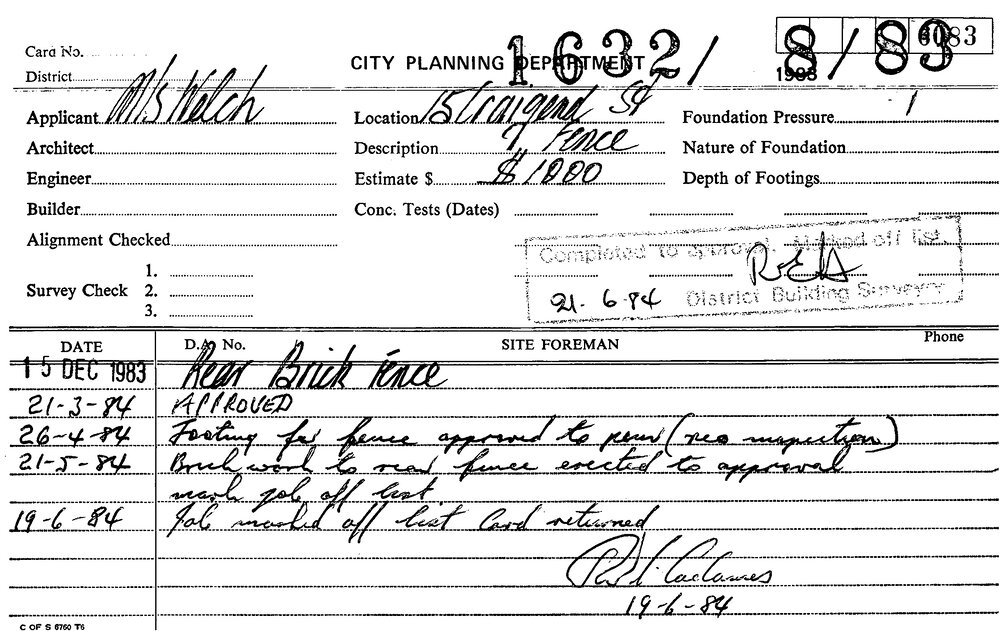 1632/8/83
6083
Card No.
District
CITY PLANNING DEPARTMENT
Applicant M/s Welch
Location 15 Craigend St
Foundation Pressure
Architect
Description Fence
Nature of Foundation
Engineer
Estimate $ $1000
Depth of Footings
Builder
Conc. Tests (Dates)
Alignment Checked
Completed to approval. Marked off list.
Survey Check 1.
2.
3.
21-6-84 District Building Surveyor
DATE D.A. No. SITE FOREMAN Phone
15 DEC 1983 Rear Brick Fence
21-3-84 APPROVED
26-4-84 Footing for fence approved to pour (neo inspection)
21-5-84 Brickwork to rear fence erected to approval
mark job off list
19-6-84 Job marked off list Card returned
19-6-84
C OF S 6760 T6